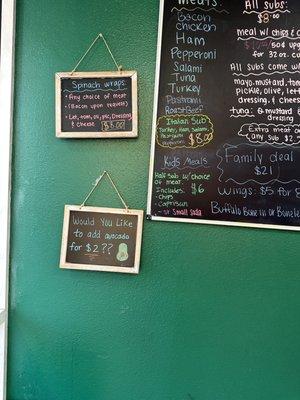 Spinach wraps:
Any choice of meat
(Bacon upon request)
Let, tom, oni, pic, Dressing
& Cheese $8.00
Would You Like
to add avocado
for $2??
Meats:
Bacon
Chicken
Ham
Pepperoni
Salami
Tuna
Turkey
Pastrami
Roast Beef
Italian Sub
Turkey, Ham, Salami,
$8.00
Kids Meals
Half Sub w/ choice
of meat
Includes: $6
- Chips
- Caprisun
- or Small Soda
All Subs:
$8.00
meal w/ chips &
for 32 oz
All Subs come
mayo, mustard,
Pickle, olive, let
dressing, & chees
tuna: & mustard &
Extra meat
any sub $2
Family deal
$21
Wings: $5 for
Buffalo Bone in or Bonele